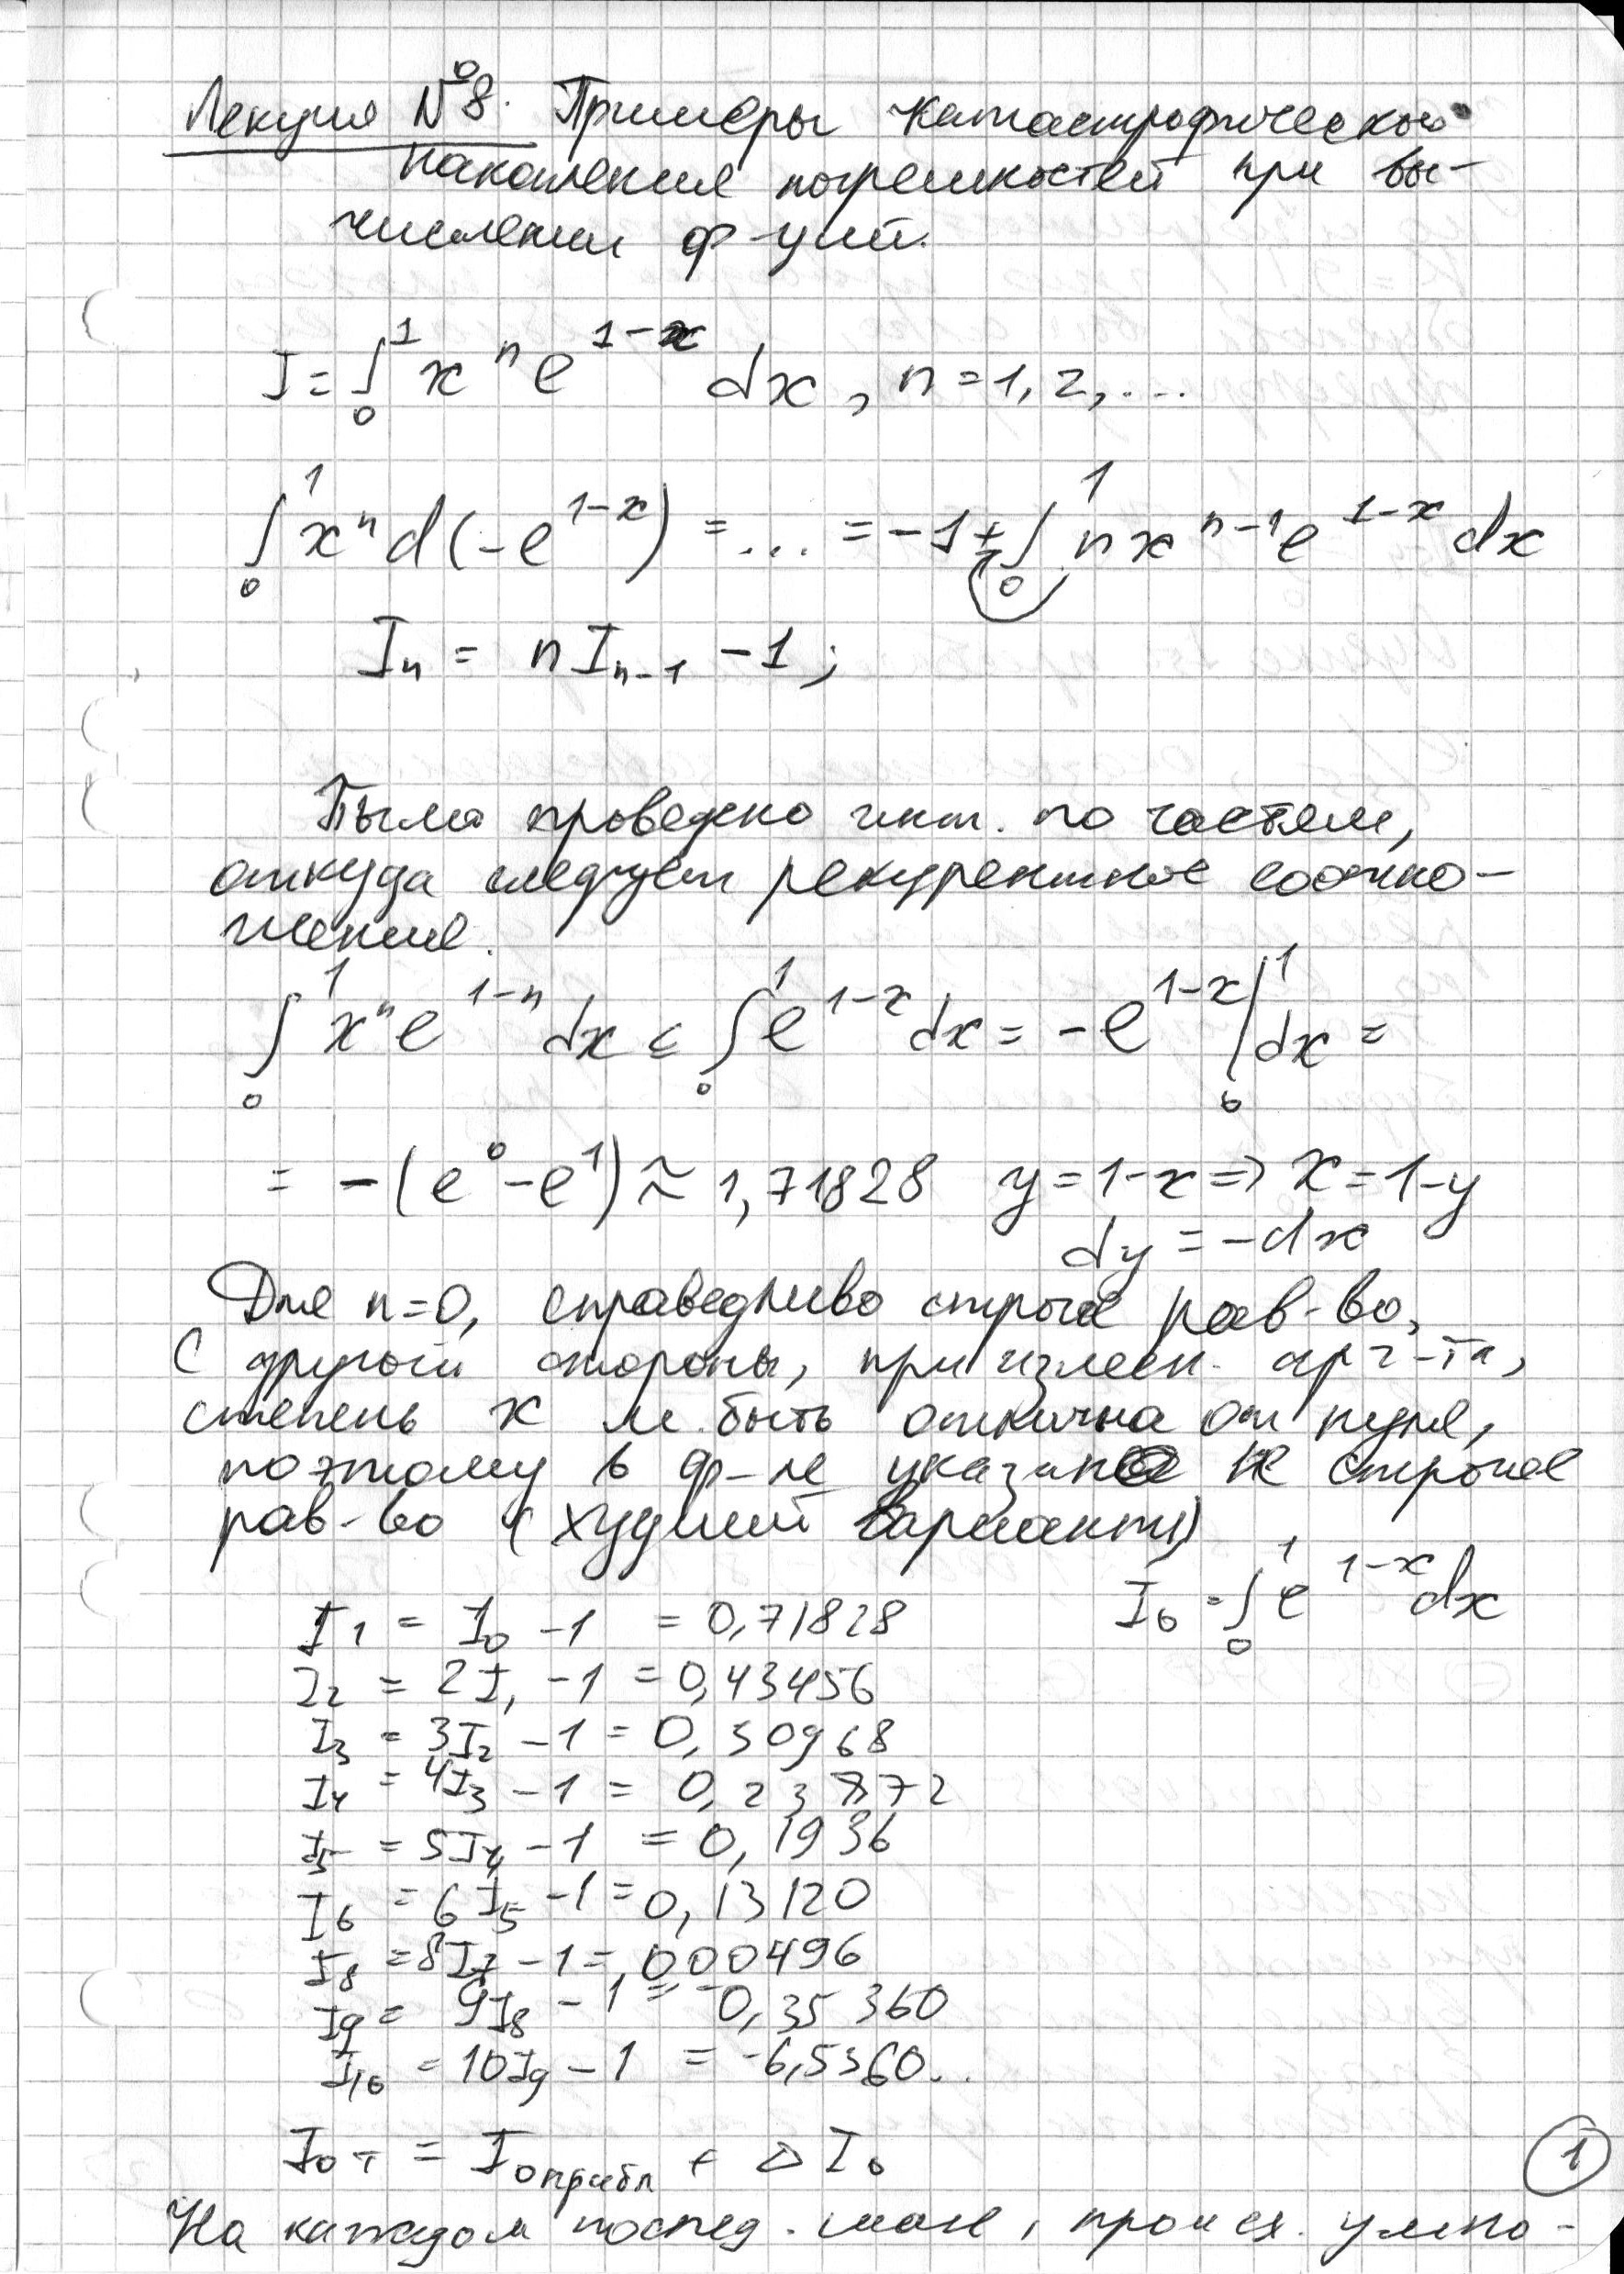 Лекция №8. Примеры катастрофического
накопления погрешностей при вы-
числении ф-ций.
I = ∫₀¹ xⁿ e^(1-x) dx, n = 1, 2, ...
∫₀¹ xⁿ d(-e^(1-x)) = ... = -1 + ∫₀¹ n x^(n-1) e^(1-x) dx
Iₙ = n Iₙ₋₁ - 1;
Было проведено инт. по частям,
откуда следует рекурентное соотно-
шение.
∫₀¹ xⁿ e^(1-n) dx ≤ ∫₀¹ e^(1-x) dx = -e^(1-x) |₀¹ dx =
= -(e⁰ - e¹) ≈ 1,71828 y = 1-x => x = 1-y
dy = -dx
Для n=0, справедливо строгое рав-во,
С другой стороны, при измен. арг-та,
степень x м. быть отлична от нуля,
поэтому в ф-ле указано не строгое
рав-во (худший вариант)
I₀ = ∫₀¹ e^(1-x) dx
I₁ = I₀ - 1 = 0,71828
I₂ = 2I₁ - 1 = 0,43456
I₃ = 3I₂ - 1 = 0,30968
I₄ = 4I₃ - 1 = 0,23772
I₅ = 5I₄ - 1 = 0,1936
I₆ = 6I₅ - 1 = 0,13120
I₈ = 8I₇ - 1 = 0,00496
I₉ = 9I₈ - 1 = -0,35360
I₁₀ = 10I₉ - 1 = -6,5360..
I₀т = I₀прибл + ΔI₀
1
На каждом послед. шаге, происх. умно-